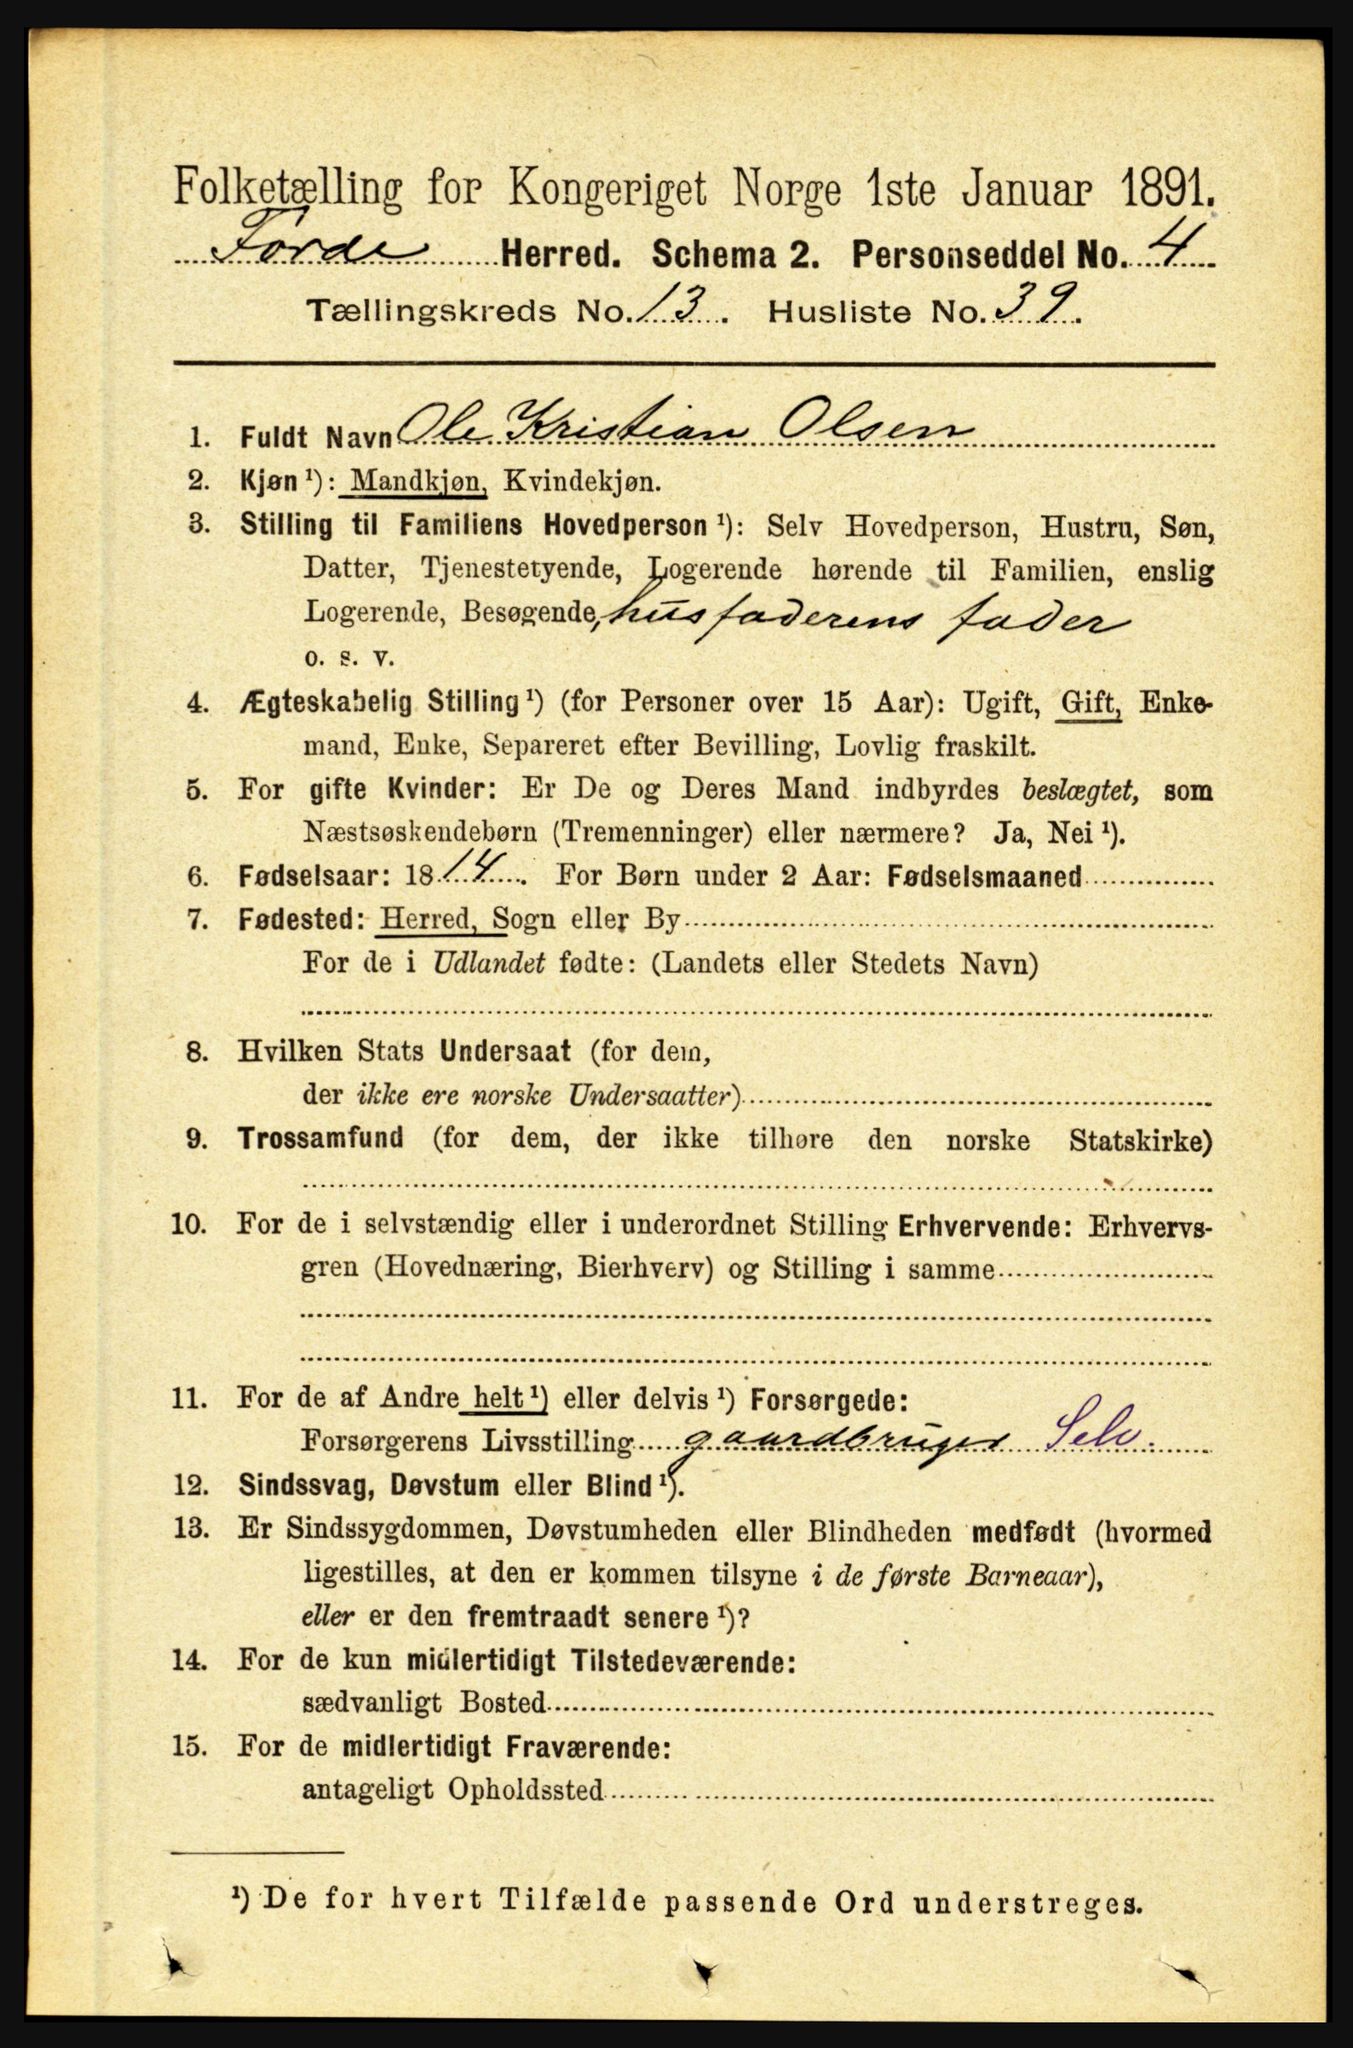 Folketælling for Kongeriget Norge 1ste Januar 1891.
Førde Herred. Schema 2. Personseddel No. 4
Tællingskreds No. 13. Husliste No. 39.
1. Fuldt Navn Ole Kristian Olsen
2. Kjøn ¹): Mandkjøn, Kvindekjøn.
3. Stilling til Familiens Hovedperson ¹): Selv Hovedperson, Hustru, Søn,
Datter, Tjenestetyende, Logerende hørende til Familien, enslig
Logerende, Besøgende, husfaderens fader
o. s. v.
4. Ægteskabelig Stilling ¹) (for Personer over 15 Aar): Ugift, Gift, Enke-
mand, Enke, Separeret efter Bevilling, Lovlig fraskilt.
5. For gifte Kvinder: Er De og Deres Mand indbyrdes beslægtet, som
Næstsøskendebørn (Tremenninger) eller nærmere? Ja, Nei ¹).
6. Fødselsaar: 1814. For Børn under 2 Aar: Fødselsmaaned
7. Fødested: Herred, Sogn eller By
For de i Udlandet fødte: (Landets eller Stedets Navn)
8. Hvilken Stats Undersaat (for dem,
der ikke ere norske Undersaatter)
9. Trossamfund (for dem, der ikke tilhøre den norske Statskirke)
10. For de i selvstændig eller i underordnet Stilling Erhvervende: Erhvervs-
gren (Hovednæring, Bierhverv) og Stilling i samme
11. For de af Andre helt ¹) eller delvis ¹) Forsørgede:
Forsørgerens Livsstilling gaardbruger Selv.
12. Sindssvag, Døvstum eller Blind ¹).
13. Er Sindssygdommen, Døvstumheden eller Blindheden medfødt (hvormed
ligestilles, at den er kommen tilsyne i de første Barneaar),
eller er den fremtraadt senere ¹)?
14. For de kun midlertidigt Tilstedeværende:
sædvanligt Bosted
15. For de midlertidigt Fraværende:
antageligt Opholdssted
¹) De for hvert Tilfælde passende Ord understreges.